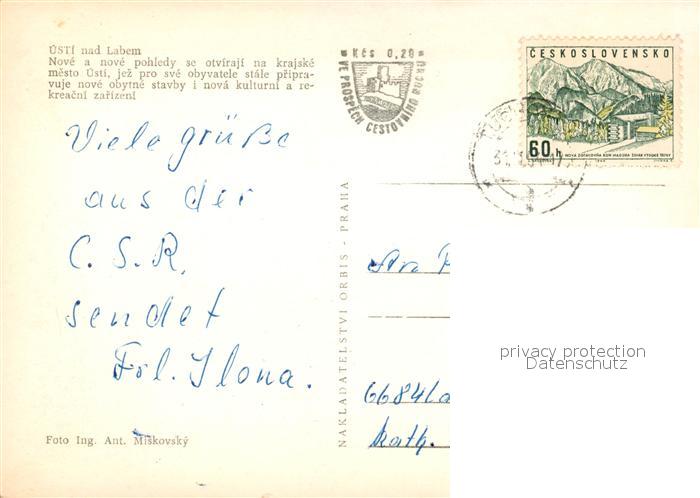 ÚSTÍ nad Labem
Nové a nové pohledy se otvírají na krajské
město Ústí, jež pro své obyvatele stále připra-
vuje nové obytné stavby i nová kulturní a re-
kreační zařízení
Viele grüße
aus der
C. S. R.
sendet
Frl. Ilona.
Foto Ing. Ant. Miškovský
NAKLADATELSTVÍ ORBIS - PRAHA
Kčs 0,20
VE PROSPĚCH CESTOVNÍHO RUCHU
ČESKOSLOVENSKO
60 h
66841
Kath.
privacy protection
Datenschutz